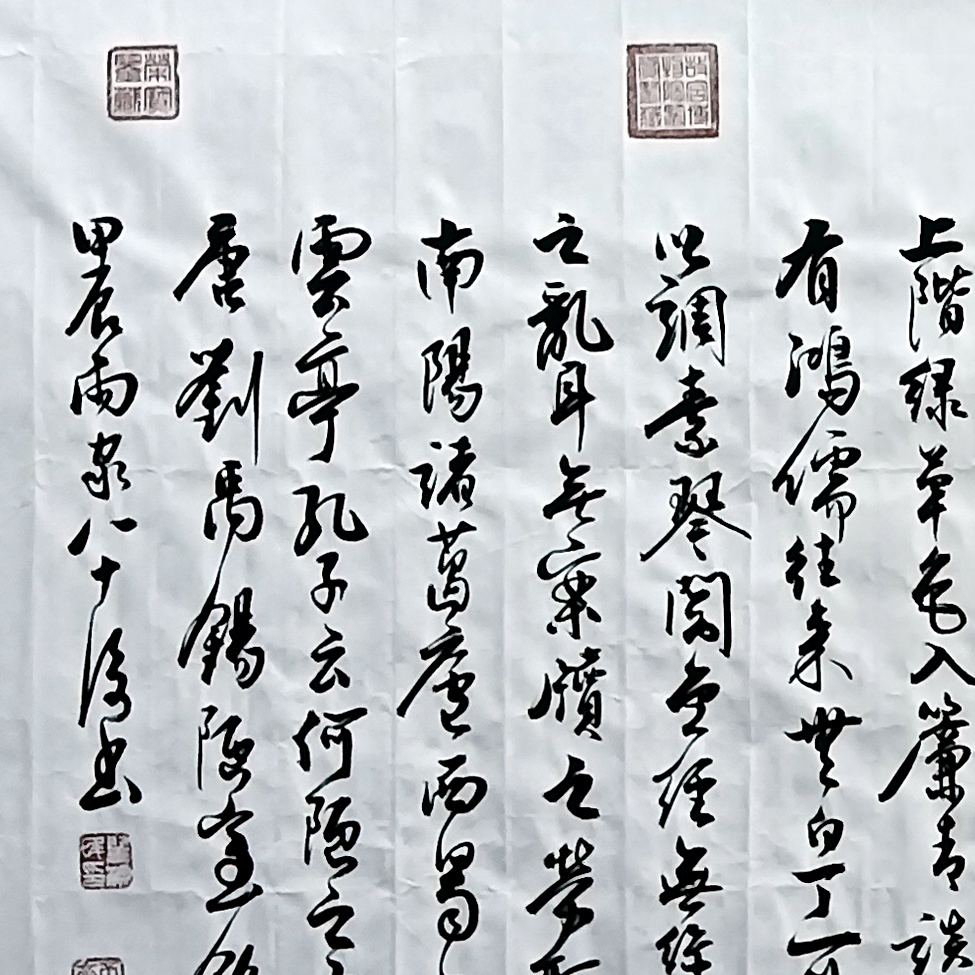 上階緑草色入簾青談
有鴻儒往来無白丁可
以調素琴閱金經無絲
之亂耳無案牘之勞
南陽諸葛廬西蜀
雲亭孔子云何陋之
唐劉禹錫陋室銘
甲辰雨泉八十後書